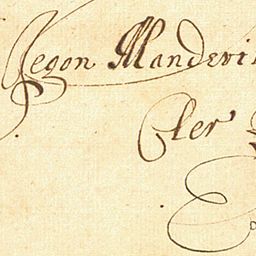 Regon Mandevi
Cler